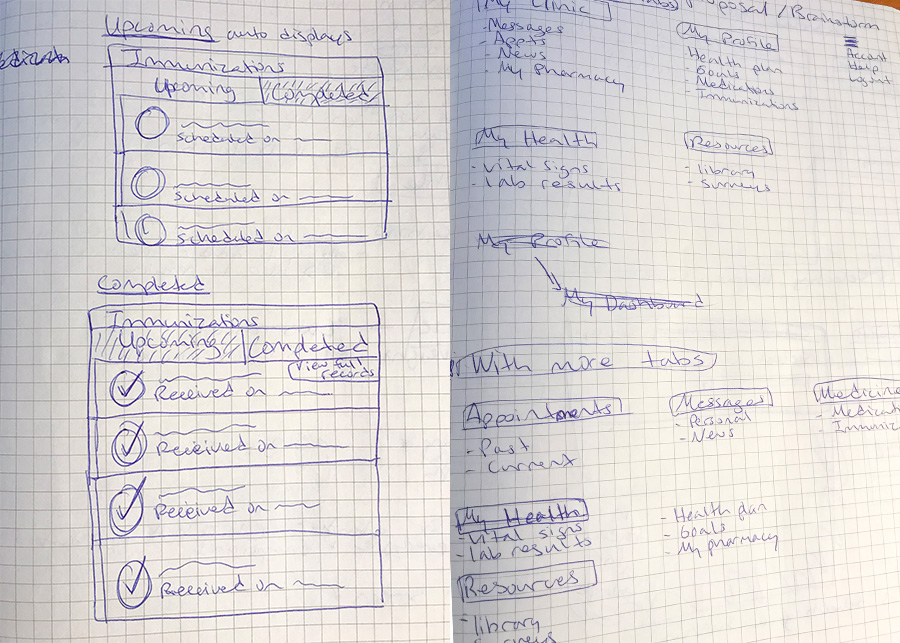 Upcoming auto displays
Immunizations
Upcoming Completed
Scheduled on
Scheduled on
Scheduled on
Completed
Immunizations
Upcoming Completed
View full
records
Received on
Received on
Received on
Received on
My Clinic
- Messages
- Appts
- News
- My pharmacy
/Brainstorm
My Profile
Health plan
- Goals
- Medications
- Immunizations
Account
Help
Logout
My Health
- Vital signs
- Lab results
Resources
- library
- surveys
My Profile
My Dashboard
With more tabs
Appointments
- Past
- Current
Messages
- Personal
- News
Medicine
- Medicat
Immuniz
My Health
- Vital signs
- lab results
- Health plan
- Goals
- My pharmacy
Resources
- library